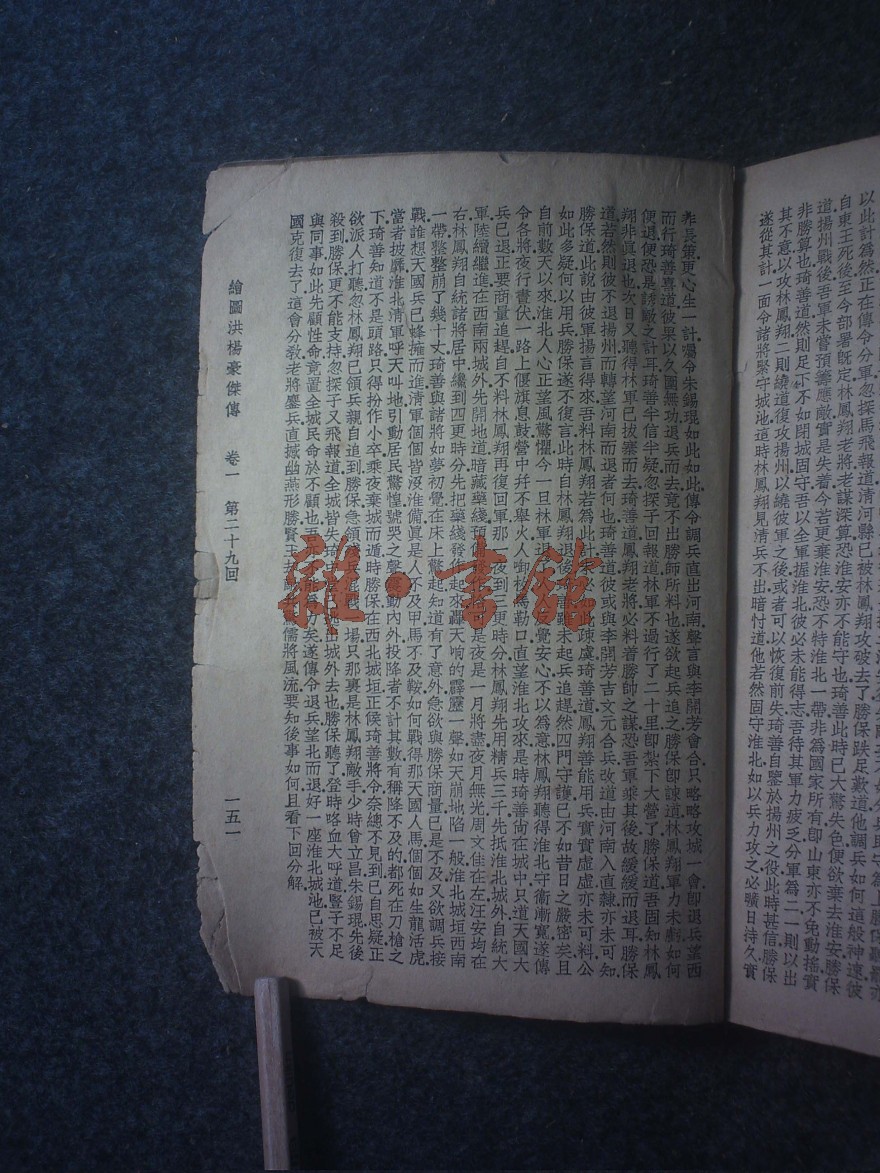 以此計爲然正在傳令分軍忽探馬飛報道清河縣已被林鳳翔攻破去了勝保跌足歎道他調兵如何這般神速彼
自東王死後至今部署旣定林鳳翔老將老謀深算恐淮安亦不能守也琦善此時已大驚失色便欲棄去淮安勝保
道揚州戰後吾軍未嘗預籌應敵實是失着今若更棄淮安恐不特淮北一帶非爲國家所有卽山東亦不免動搖實
非勝算也琦善道然則足下不如閉城固守吾以全軍握淮北彼必未能得志吾待其軍力疲乏分軍爲二一則以出
其不意以攻林鳳翔二則繞道復攻揚州以繞彼軍之後或者可以恢復前失琦善自鑒於揚州之役此時甚信勝保
遂從其計一面令諸將緊守城池這時林鳳翔見清兵不出暗忖道他若然固守淮北如以兵力攻之必曠日持久實
非長策更心生一計囑令朱錫琨如此如此傳令調兵直出河南聲言與李開芳會合只略略攻城一會卽退兵望西
而行琦善喜道彼果以久圍無功退兵而去竟不出勝師所料也遂欲起兵追之勝保卽諫道林鳳翔軍力未虧如何
便退便恐是誘敵之計耳琦善半信半疑忽探子回報道林軍不過行了二十里卽紮下大營了勝保道吾固知林鳳
翔非眞退也次日又聽得林軍已拔寨而去琦善道鳳翔老將必料着勝帥之謀恐吾軍乘其後故緩緩而退耳勝保
道若然則彼不退揚州而轉望河南而退者何也琦善道彼或與李開芳吉文元合兵改道由河南入直隸亦未可知
勝保道此說由彼軍揚言得來吾料林鳳翔若爲此計未必如此疎虞琦善道鳳翔善能用兵實實虛虛亦未可料公
如此多疑何以用兵勝保遂不復言此時自林鳳翔退後琦善雖未起兵追趕然四門守護已不如昔日之嚴密矣且
自前數天以來淮北人心正望風驚懼今一旦林軍退去覺安心不以爲意林鳳翔聽得淮北守衞漸寬遂傳
令各將夜行晝伏一路上偃旗息鼓營中幷不舉火人啣枚馬勒口直望淮北攻來是時琦善尙在城中只道天國大
兵已退正要商量追趕自不料林鳳翔再復回軍那一夜到二更時分林鳳翔先用精兵三千先抵淮北城外自統大
軍陸續繼進在西南兩城外先開地道暗藏藥綫預備是夜是一月將盡夜月無光周文佳在左汪安均在
右林鳳翔自統諸將居中纔到四更時分先把藥綫發作起來轟天响的霹靂一聲如天崩地陷一般淮北城垣西南
一帶整整崩了幾十丈琦善與諸將如夢初覺在床上驚起知道有了意外急欲與勝保商量已是不及又欲調兵接
戰誰想天國兵已蜂擁而進清軍個個皆沒准備眞是人不及甲馬不及鞍如何戰得那天國人馬個個如生龍活虎
當者披靡淮北清軍呼天叫地引動居民驚惶號哭之聲震動內外投降者不計其數有稱降不及的都死在刀槍之
下琦善知道不是頭路只得扮作小卒乘夜棄城而遁時勝保在西北城垣正候琦善將令奈總不見到已自思疑正
欲派人打聽忽林鳳翔已領兵親自追到勝保急領兵混戰一場只那裏是林鳳翔敵手少時曾立昌朱錫琨先後
殺到勝保更不能支持忽探子又飛報道全城皆失琦善已逃出城外去也勝保聽了登時咯血大呼道豎子不足
與同事如此先顧性命竟置全城民命於不顧也吾力矣遂傳令退兵望北而退好一座淮北城池已被天
國克復去了這會分敎老將鏖兵直撼幽燕形勝賢王儒將風流要知後事如何且看下回分解
繪圖洪楊豪傑傳　卷一　第二十九回　一五一
雜·書館